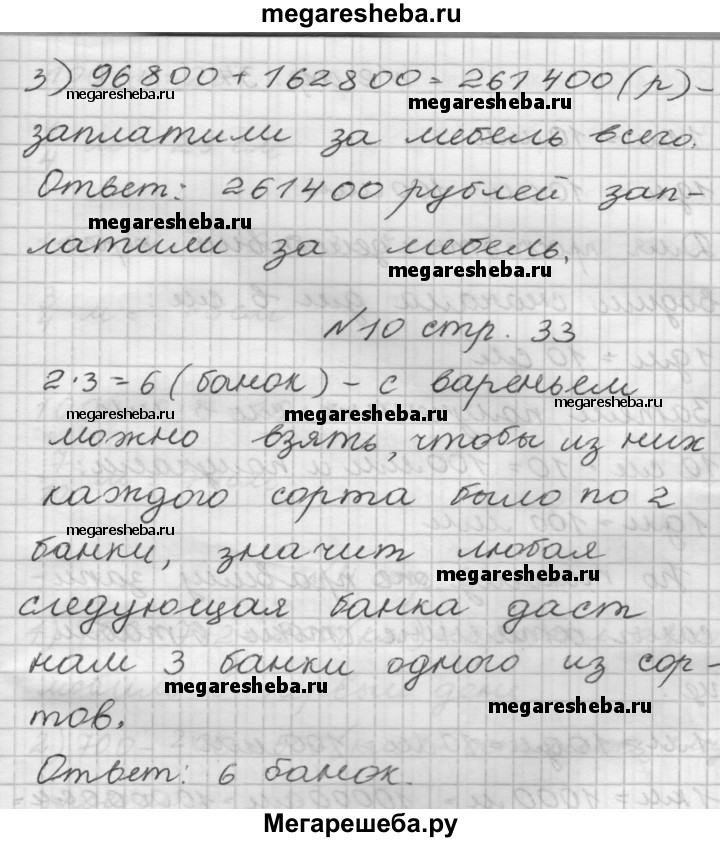 megaresheba.ru
3) 96800 + 162800 = 261400 (р) -
megaresheba.ru megaresheba.ru
заплатили за мебель всего.
Ответ: 261400 рублей зап-
megaresheba.ru
латили за мебель.
megaresheba.ru
№10 стр. 33
2·3=6 (банок) - с вареньем
megaresheba.ru megaresheba.ru megaresheba.ru
можно взять, чтобы из них
каждого сорта было по 2
megaresheba.ru
банки, значит любая
megaresheba.ru
следующая банка даст
нам 3 банки одного из сор-
megaresheba.ru megaresheba.ru
тов.
Ответ: 6 банок.
Мегарешеба.ру